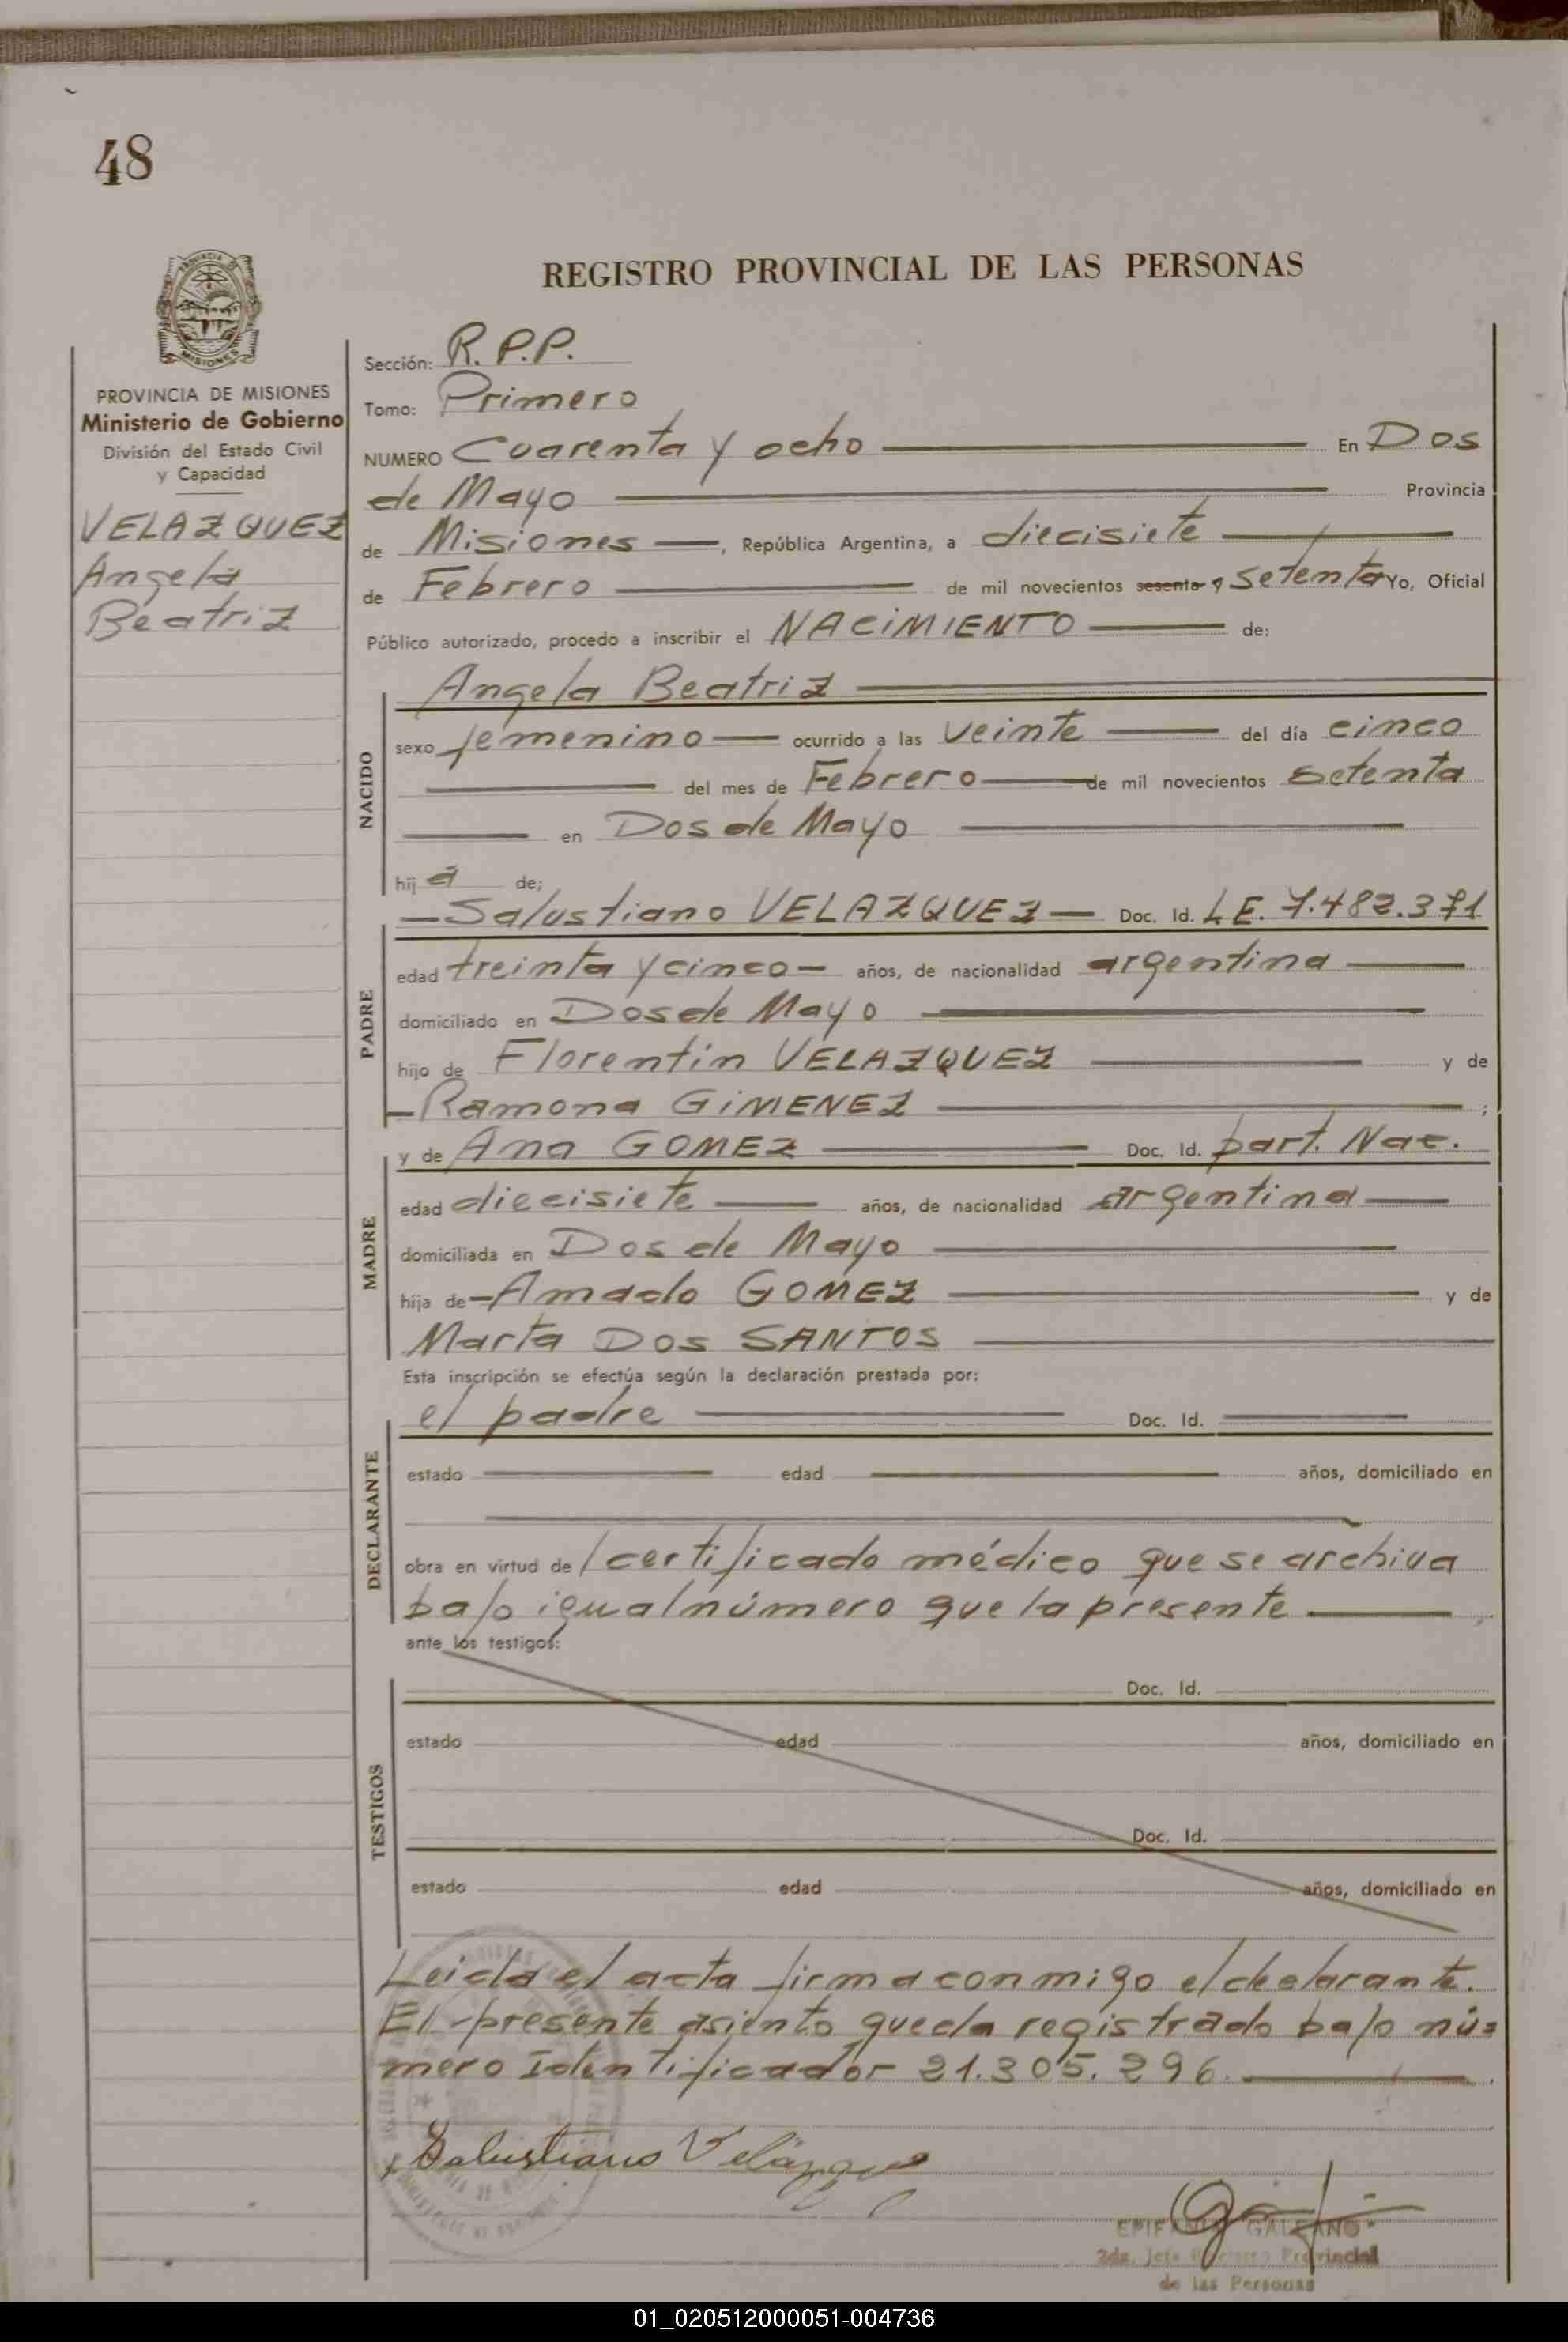 48
REGISTRO PROVINCIAL DE LAS PERSONAS
PROVINCIA DE MISIONES
Ministerio de Gobierno
División del Estado Civil
y Capacidad
VELAZQUEZ
Angela
Beatriz
Sección: R. P.P.
Tomo: Primero
NUMERO Cuarenta y ocho En Dos
de Mayo Provincia
de Misiones, República Argentina, a diecisiete
de Febrero de mil novecientos sesenta y setenta Yo, Oficial
Público autorizado, procedo a inscribir el NACIMIENTO de:
NACIDO
Angela Beatriz
sexo femenino ocurrido a las veinte del día cinco
del mes de Febrero de mil novecientos setenta
en Dos de Mayo
hij a de;
PADRE
Salustiano VELAZQUEZ Doc. Id. L.E. 7.482.371
edad treinta y cinco años, de nacionalidad argentina
domiciliado en Dos de Mayo
hijo de Florentin VELAZQUEZ y de
Ramona GIMENEZ ;
MADRE
y de Ana GOMEZ Doc. Id. part. Nac.
edad diecisiete años, de nacionalidad argentina
domiciliada en Dos de Mayo
hija de Amado GOMEZ y de
Marta DOS SANTOS
Esta inscripción se efectúa según la declaración prestada por:
DECLARANTE
el padre Doc. Id.
estado edad años, domiciliado en
obra en virtud de /certificado médico que se archiva
bajo igual número que la presente
ante los testigos:
TESTIGOS
Doc. Id.
estado edad años, domiciliado en
Doc. Id.
estado edad años, domiciliado en
Leida el acta firma conmigo el declarante.
El presente asiento queda registrado bajo nú=
mero Identificador 21.305.296.
Salustiano Velázquez
EPIFANIO GALEANO
2do. Jefe Provincial
de las Personas
01_020512000051-004736